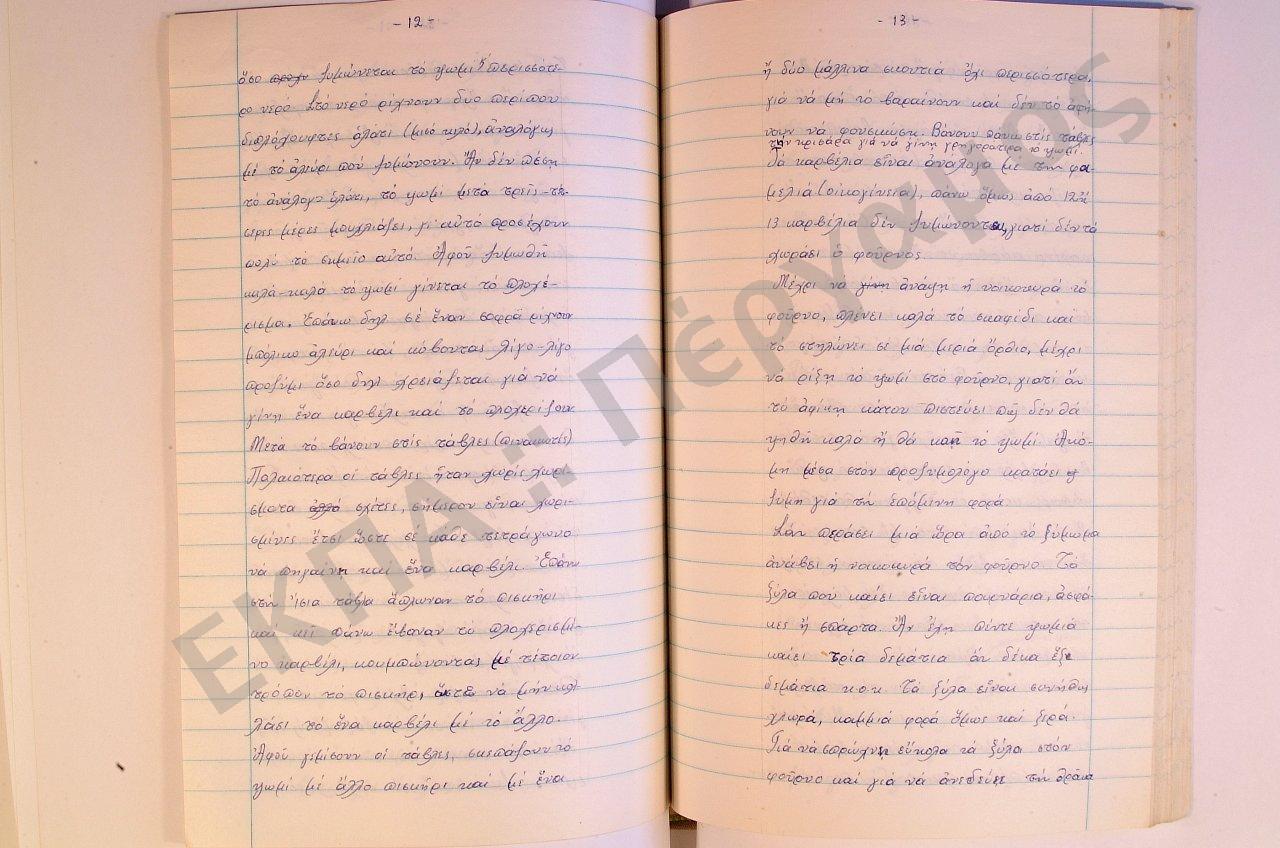 - 12 -
ὅσο ζυμώνεται τό ψωμί περισσότε-
ρο νερό. Στό νερό ρίχνουν δύο περίπου
διπλόχουφτες ἁλάτι (μισό κιλό), ἀναλόγως
μέ τό ἀλεύρι πού ζυμώνουν. Ἄν δέν πέση
τό ἀνάλογο ἁλάτι, τό ψωμί μετά τρεῖς-τέσ-
σερες μέρες μουχλιάζει, γι' αὐτό προσέχουν
πολύ τό σημεῖο αὐτό. Ἀφοῦ ζυμωθῆ
καλά-καλά τό ψωμί γίνεται τό πλοχέ-
ρισμα. Ἐπάνω δηλ σέ ἕναν σοφρᾶ ρίχνουν
μπόλικο ἀλεύρι καί κόβοντας λίγο-λίγο
προζύμι ὅσο δηλ χρειάζεται γιά νά
γίνη ἕνα καρβέλι καί τό πλοχερίζουν
Μετά τό βάνουν στίς τάβλες (πινακωτές)
Παλαιότερα οἱ τάβλες ἦταν χωρίς χωρί-
σματα σχέτες, σήμερον εἶναι χωρι-
σμένες ἔτσι ὥστε σέ κάθε τετράγωνο
νά πηγαίνη καί ἕνα καρβέλι. Ἐπάνω
στήν ἴσια τάβλα ἅπλωναν τό πισκήρι
καί κεῖ πάνω ἔβαναν τό πλοχερισμέ-
νο καρβέλι, κουμπώνοντας μέ τέτοιον
τρόπον τό πισκήρι, ὥστε νά μήν κολ-
λάσι τό ἕνα καρβέλι μέ τό ἄλλο.
Ἀφοῦ γεμίσουν οἱ τάβλες, σκεπάζουν τό
ψωμί μέ ἄλλο πισκήρι καί μέ ἕνα
- 13 -
ἤ δύο μάλλινα σκουτιά ὄχι περισσότερα,
γιά νά μή τό βαραίνουν καί δέν τό ἀφή-
νουν νά φουσκώση. Βάνουν πάνω στίς τάβλες
τήν κρισάρα γιά νά γίνη γρηγορότερα τό ψωμί.
Τά καρβέλια εἶναι ἀνάλογα μέ τήν φα-
μελιά (οἰκογένεια), πάνω ὅμως ἀπό 12 ἤ
13 καρβέλια δέν ζυμώνονται, γιατί δέν τά
χωράει ὁ φοῦρνος
Μέχρι νά ἀνάψη ἡ νοικοκυρά τό
φοῦρνο, πλένει καλά τό σκαφίδι καί
τό στηλώνει σέ μιά μεριά ὄρθιο, μέχρι
νά ρίξη τό ψωμί στό φοῦρνο, γιατί ἄν
τό ἀφίση κάτου πιστεύει πώς δέν θά
ψηθῆ καλά ἤ θά καῆ τό ψωμί. Ἀκό-
μη μέσα στόν προζυμολόγο κρατάει
ζύμη γιά τή ἑπόμενη φορά
Σάν περάσει μιά ὥρα ἀπό τό ζύμωμα
ἀνάβει ἡ νοικοκυρά τόν φοῦρνο. Τά
ξύλα που καίει εἶναι πουρνάρια, ἀσφά-
κες ἤ σπάρτα. Ἄν ἔχη πέντε ψωμιά
καίει τρία δεμάτια ἄν δέκα ἕξι
δεμάτια κ.ο.κ Τά ξύλα εἶναι συνήθως
χλωρά, καμμιά φορά ὅμως καί ξερά.
Γιά νά σπρώχνη εὔκολα τά ξύλα στόν
φοῦρνο καί γιά νά ἀνεδεύει τή θράκα
ΕΚΠΑ :: Πέργαμος